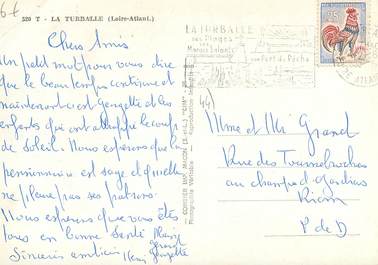 520 T - LA TURBALLE (Loire-Atlant.)
Chers Amis
Un petit mot pour vous dire
que le beau temps continue et
maintenant c'est Georgette et les
enfants qui ont attrappé le coup
de Soleil. Nous espérons que la
pensionnaire est sage et qu'elle
ne pleure pas ses patrons.
Nous espérons que vous êtes
tous en bonne Santé
Sincères amitiés
Georgette
LA TURBALLE
ses Plages
ses
Marais Salants
son Port de Pêche
COMBIER IMP. MACON (S.-et-L.) "CIM"
Photographie Véritable - Reproduction Interdite
44)
Mme et Mr Grand
Rue des Tournebroches
au champ
Riom
P de D